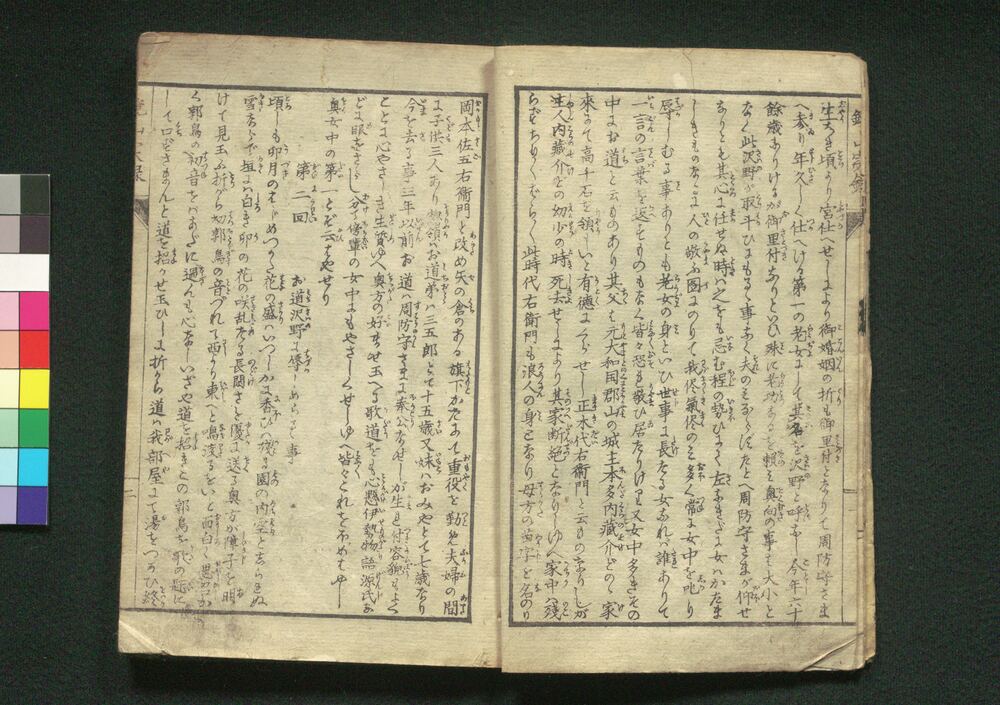 生先き頃より宮仕へせしより御婚姻の折も御里付となりて周防守さま
へ参り年久しく仕へける第一の老女にして其名を沢野と呼なし今年六十
餘歳ありけるが御里付なりといひ殊に老功なるを頼み奥向の事は大小と
なく此沢野が取斗ひにもるゝ事なく夫のみならばたとへ周防守さまが仰せ
ありとも其心に任せぬ時は之をも忌む程の勢ひなれば左なきだに女はかたま
しきものなるに人の敬ふ図にのりて我侭氣侭のミ多く常に女中を叱り
辱しむる事ありとも老女の身といひ世事に長たる女なれば誰ありて
一言の言葉を返すものもなく皆々恐れ敬ひ居たりけり又女中多きその
中にお道と云ものあり其父は元大和国郡山の城主本多内藏介どのゝ家
來にて高千石を領しいと有徳にくらせし正本代右衛門と云ものなりしが
主人内藏介どの幼少の時死去せしにより其家断絶となりしゆへ家中は残
らずちり〴〵ばら〳〵此時代右衛門も浪人の身となり母方の苗字を名のり
岡本佐五右衛門と改め矢の倉のある旗下かたにて重役を勤め夫婦の間
に子供三人あり惣領はお道弟は三五郎とて十五歳又妹はおみやとて七歳なり
今を去る事三年以前お道は周防守さまに奉公なせしが生れ付容貌もよく
ことに心やさしき生質ゆへ奥方の好ませ玉へる歌道をも心懸伊勢物語源氏な
どに眼をさらし分て傍輩の女中にもやさしくせしゆへ皆々これをほめはやし
奥女中の第一とぞ云はやせり
第二回 お道沢野に辱しめらるゝ事
頃しも卯月のはじめつかた花の盛はいつしかに香ひは残る園の内空としらねぬ
雪ならで垣に白き卯の花の咲乱たる長閑さを優に送る奥方が障子を明
けて見玉ふ折から初郭鳥の音づれて西から東へと鳴渡るをいと面白く思召か
く郭鳥の初音をはあだに過んも心なしいざや道を招きこの郭鳥を歌の題に
して口ずさまんと道を招かせ玉ひしに折から道は我部屋にて湯をつかひ終